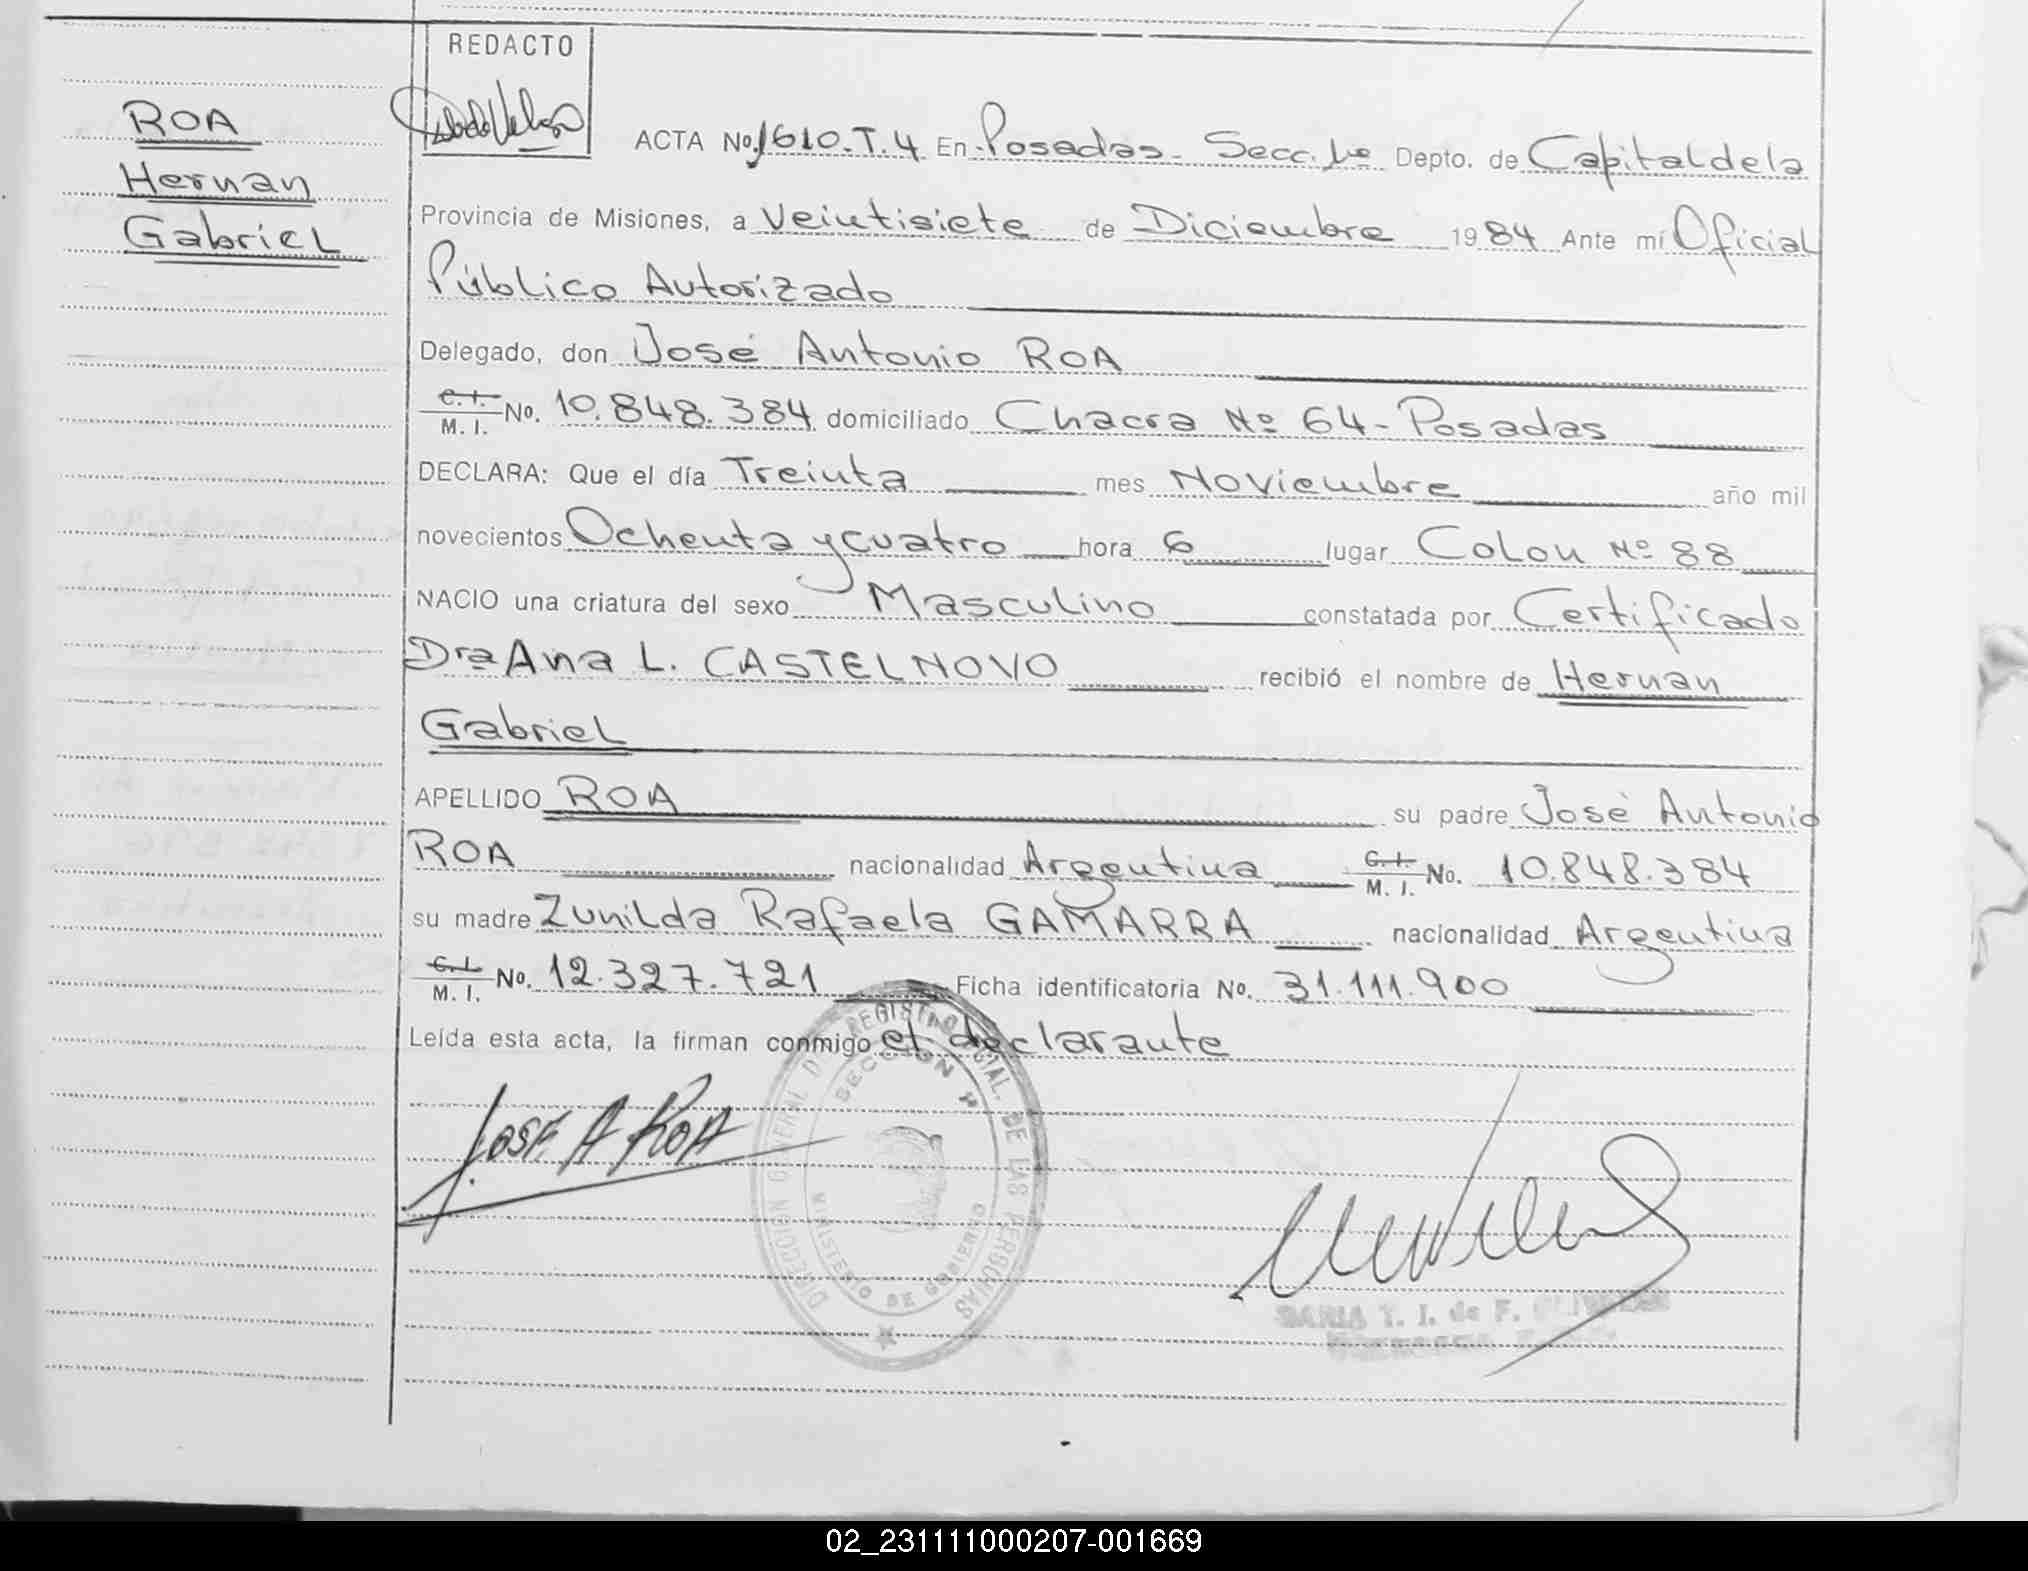 REDACTO
ROA
Hernan
Gabriel
ACTA No. 1610.T.4 En Posadas - Secc. 1º Depto. de Capital de la
Provincia de Misiones, a Veintisiete de Diciembre 1984 Ante mí Oficial
Público Autorizado
Delegado, don José Antonio ROA
C. I. / M. I. No. 10.848.384 domiciliado Chacra Nº 64 - Posadas
DECLARA: Que el día Treinta mes Noviembre año mil
novecientos Ochenta y cuatro hora 6 lugar Colon Nº 88
NACIO una criatura del sexo Masculino constatada por Certificado
Dra Ana L. CASTELNOVO recibió el nombre de Hernan
Gabriel
APELLIDO ROA su padre José Antonio
ROA nacionalidad Argentina C. I. / M. I. No. 10.848.384
su madre Zunilda Rafaela GAMARRA nacionalidad Argentina
C. I. / M. I. No. 12.327.721 Ficha identificatoria No. 31.111.900
Leída esta acta, la firman conmigo el declarante
JOSE A ROA
DIRECCION GENERAL DEL REGISTRO PROVINCIAL DE LAS PERSONAS
SECCION 1ª
MINISTERIO DE GOBIERNO
T. I. de F.
02_231111000207-001669